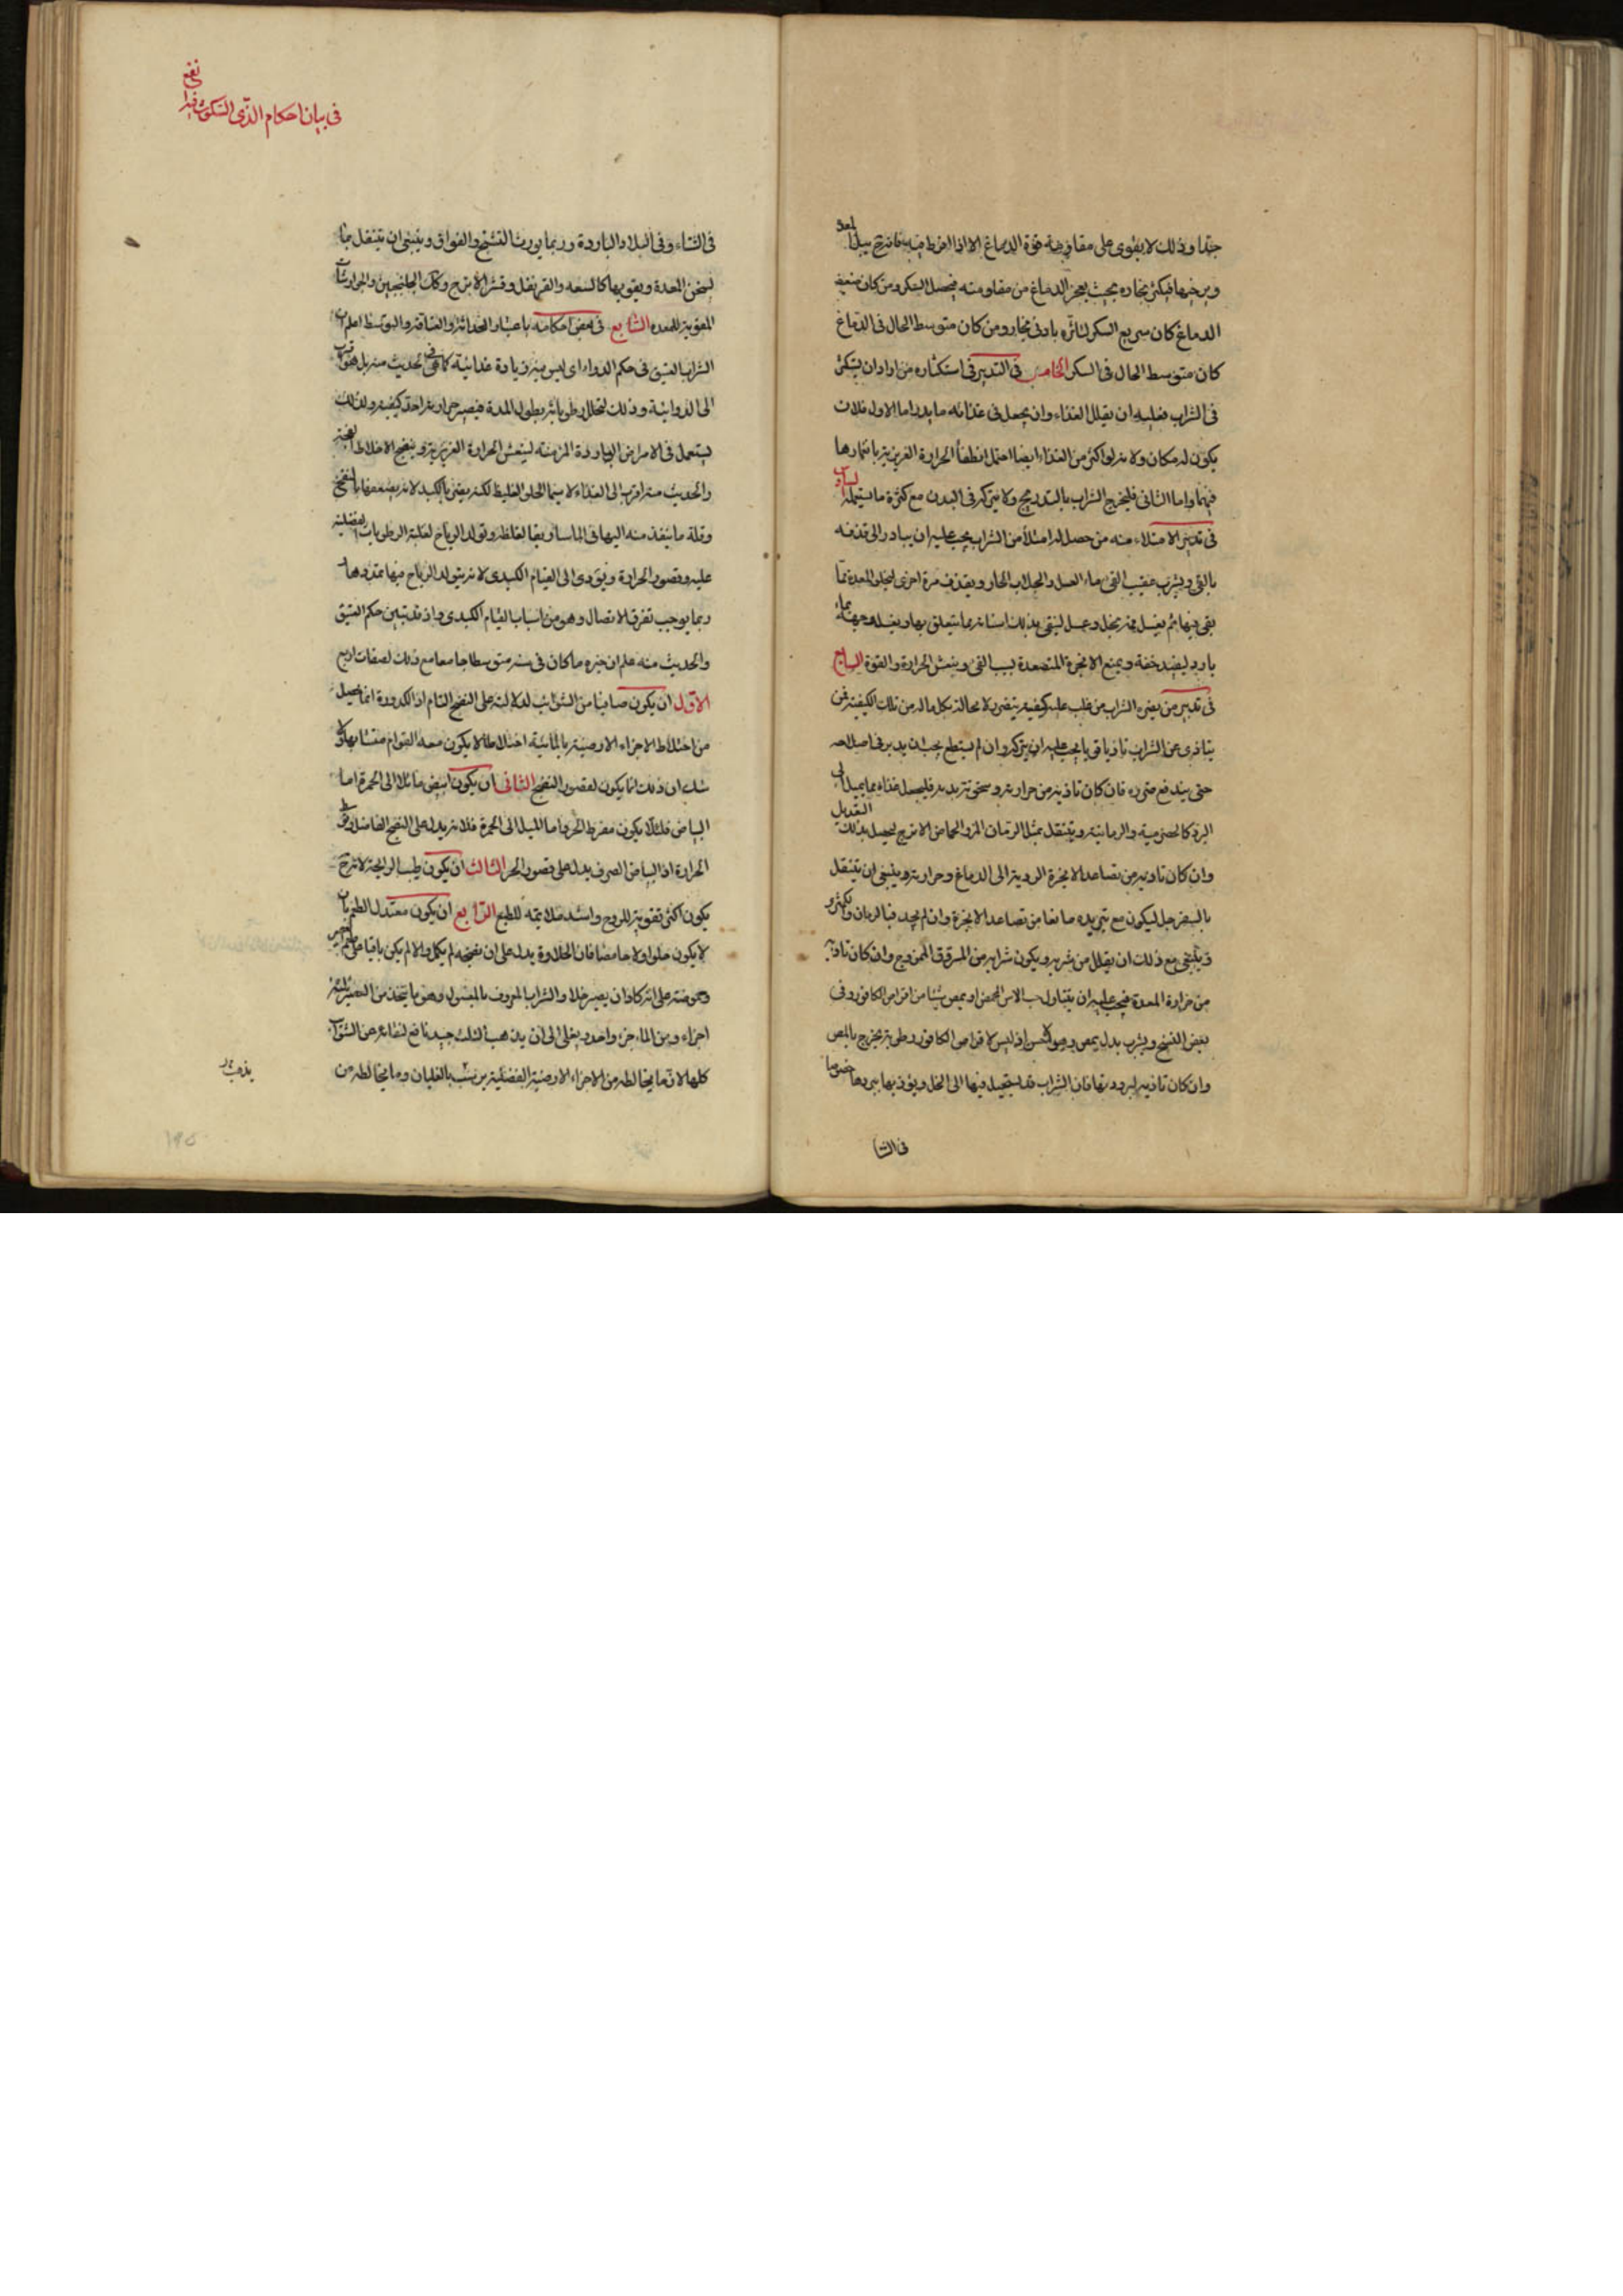 جدا وذلك لا يقوى على مقاومة قوة الدماغ الا اذا افرط فيه فانه يبل المعدة
ويرخيها فيكثر بخاره بحيث يعجز الدماغ من مقاومته فيحصل السكر ومن كان ضعيف
الدماغ كان سريع السكر لتأثره بادنى بخار ومن كان متوسط الحال فى الدماغ
كان متوسط الحال فى السكر الخامس فى التدبير فى استكثاره من اراد ان يستكثر
فى الشراب فعليه ان يقلل الغذاء وان يجعل فى غذائه ما يدر اما الاول فلان
يكون له مكان ولانه لو اكثر من الغذاء ايضا احتمل انطفأ الحرارة الغريزية بانغمارها
فيهما واما الثانى فليخرج الشراب بالتدريج ولا يتركه فى البدن مع كثرة ما يستعمله السادس
فى تدبير الامتلاء منه من حصل له امتلأ من الشراب يجب عليه ان يبادر الى قذفه
بالقى ويشرب عقيب القى ماء العسل والجلاب الحار ويقذف مرة اخرى ليخلو المعدة عما
بقى فيها ثم يغسل فمه بخل وعسل لينقى بذلك اسنانه مما يتعلق بها ويغسل وجهه بماء
بارد ليفيد خفة ويمنع الابخرة المتصعدة بسبب القى وينعش الحرارة والقوة السابع
فى تدبير من يضره الشراب من غلب عليه كيفية يتضرر لا محالة بكل ماله من تلك الكيفية فمن
يتاذى عن الشراب تاذيا قويا يجب عليه ان يتركه وان لم يستطع يجب ان يدبر فى اصلاحه
حتى يندفع ضرره فان كان تاذيه من حرارته وسخونته يبدنه فليجعل غذاه مما يميل الى
البرد كالحصرمية والرمانية ويتنقل بمثل الرمان المز والحماض الاترج ليحصل بذلك التعديل
وان كان تاذيه من تصاعد الابخرة الردية الى الدماغ وحرارته وينبغى ان يتنقل
بالسفرجل ليكون مع تبريده مانعا من تصاعد الابخرة وان لم يجد فبالرمان والكمثرى
وينبغى مع ذلك ان يقلل من شربه ويكون شرابه من المروق الممزوج وان كان تاذيه
من حرارة المعدة فيجب عليه ان يتناول حب الاس المحمص او يمص شيئا من اقراص الكافور وفى
بعض النسخ ويشرب بدل يمص وهو اذ ليس لاقراص الكافور رطوبة يخرج بالمص
وان كان تاذيه لبرودتها فان الشراب قد يستحيل فيها الى الخل ويؤذيها ببردها خصوصا
فى الشتا
فى بيان احكام الذى السكون فيه انفع
فى الشتاء وفى البلاد الباردة وربما يورث التشنج والفواق وينبغى ان يتنقل بما
يسخن المعدة ويقويها كالسعد والقرنفل وقشر الاترج وكذلك الجلنجبين والجوارشات
المقوية للمعدة الثامن فى بعض احكامه باعتبار الحداثة والعتاقة والتوسط اعلم ان
الشراب العتيق فى حكم الدواء اى ليس فيه زيادة غذائية كما هى فى الحديث منه بل هو اقرب
الى الدوائية وذلك لتحلل رطوباته بطول المدة فيصير حرارته احد كيفية ولذلك
يستعمل فى الامراض الباردة المزمنة لينعش الحرارة الغريزية وينضج الاخلاط الفجة
والحديث منه اقرب الى الغذاء لا سيما الحلو الغليظ لكنه يضر بالكبد لانه يضعفها بالنفخ
وقلة ما ينفذ منه اليها فى الماساريقا لغلظه وتولد الرياح لغلبة الرطوبات الفضلية
عليه وقصور الحرارة ويؤدى الى القيام الكبدى لانه يتولد الرياح فيها بتمددها
ربما يوجب تفرق الاتصال وهو من اسباب القيام الكبدى واذ قد تبين حكم العتيق
والحديث منه علم ان خيره ما كان فى سنه متوسطا جامعا مع ذلك لصفات اربع
الاول ان يكون صافيا من الشوائب لدلالته على النضج التام اذ الكدورة انما تحصل
من اختلاط الاجزاء الارضية بالمائية اختلاطا لا يكون معه القوام متشابها ولا
شك ان ذلك انما يكون لقصور النضج الثانى ان يكون ابيض مائلا الى الحمرة اما
البياض فلئلا يكون مفرط الحر واما الميل الى الحمرة فلانه يدل على النضج الفاضل وتوسط
الحرارة اذ البياض الصرف يدل على قصور الحر الثالث ان يكون طيب الرايحة لانه
يكون اكثر تقوية للروح واشد ملايمة للطبع الرابع ان يكون معتدل الطعم بان
لا يكون حلوا ولا حامضا فان الحلاوة يدل على ان نضجه لم يكمل والا لم يكن باقيا على طعم العصير
وحموضته على انه كاد ان يصير خلا والشراب المعروف بالمغسول وهو ما يتخذ من العصير ثلثة
اجزاء ومن الماء جزء واحد ويغلى الى ان يذهب الثلث جيد نافع لنقائه عن الشوائب
كلها لان ما يخالطه من الاجزاء الارضية الفضلية يرسب بالغليان وما يخالطه من
يذهب بالـ
١٩٥